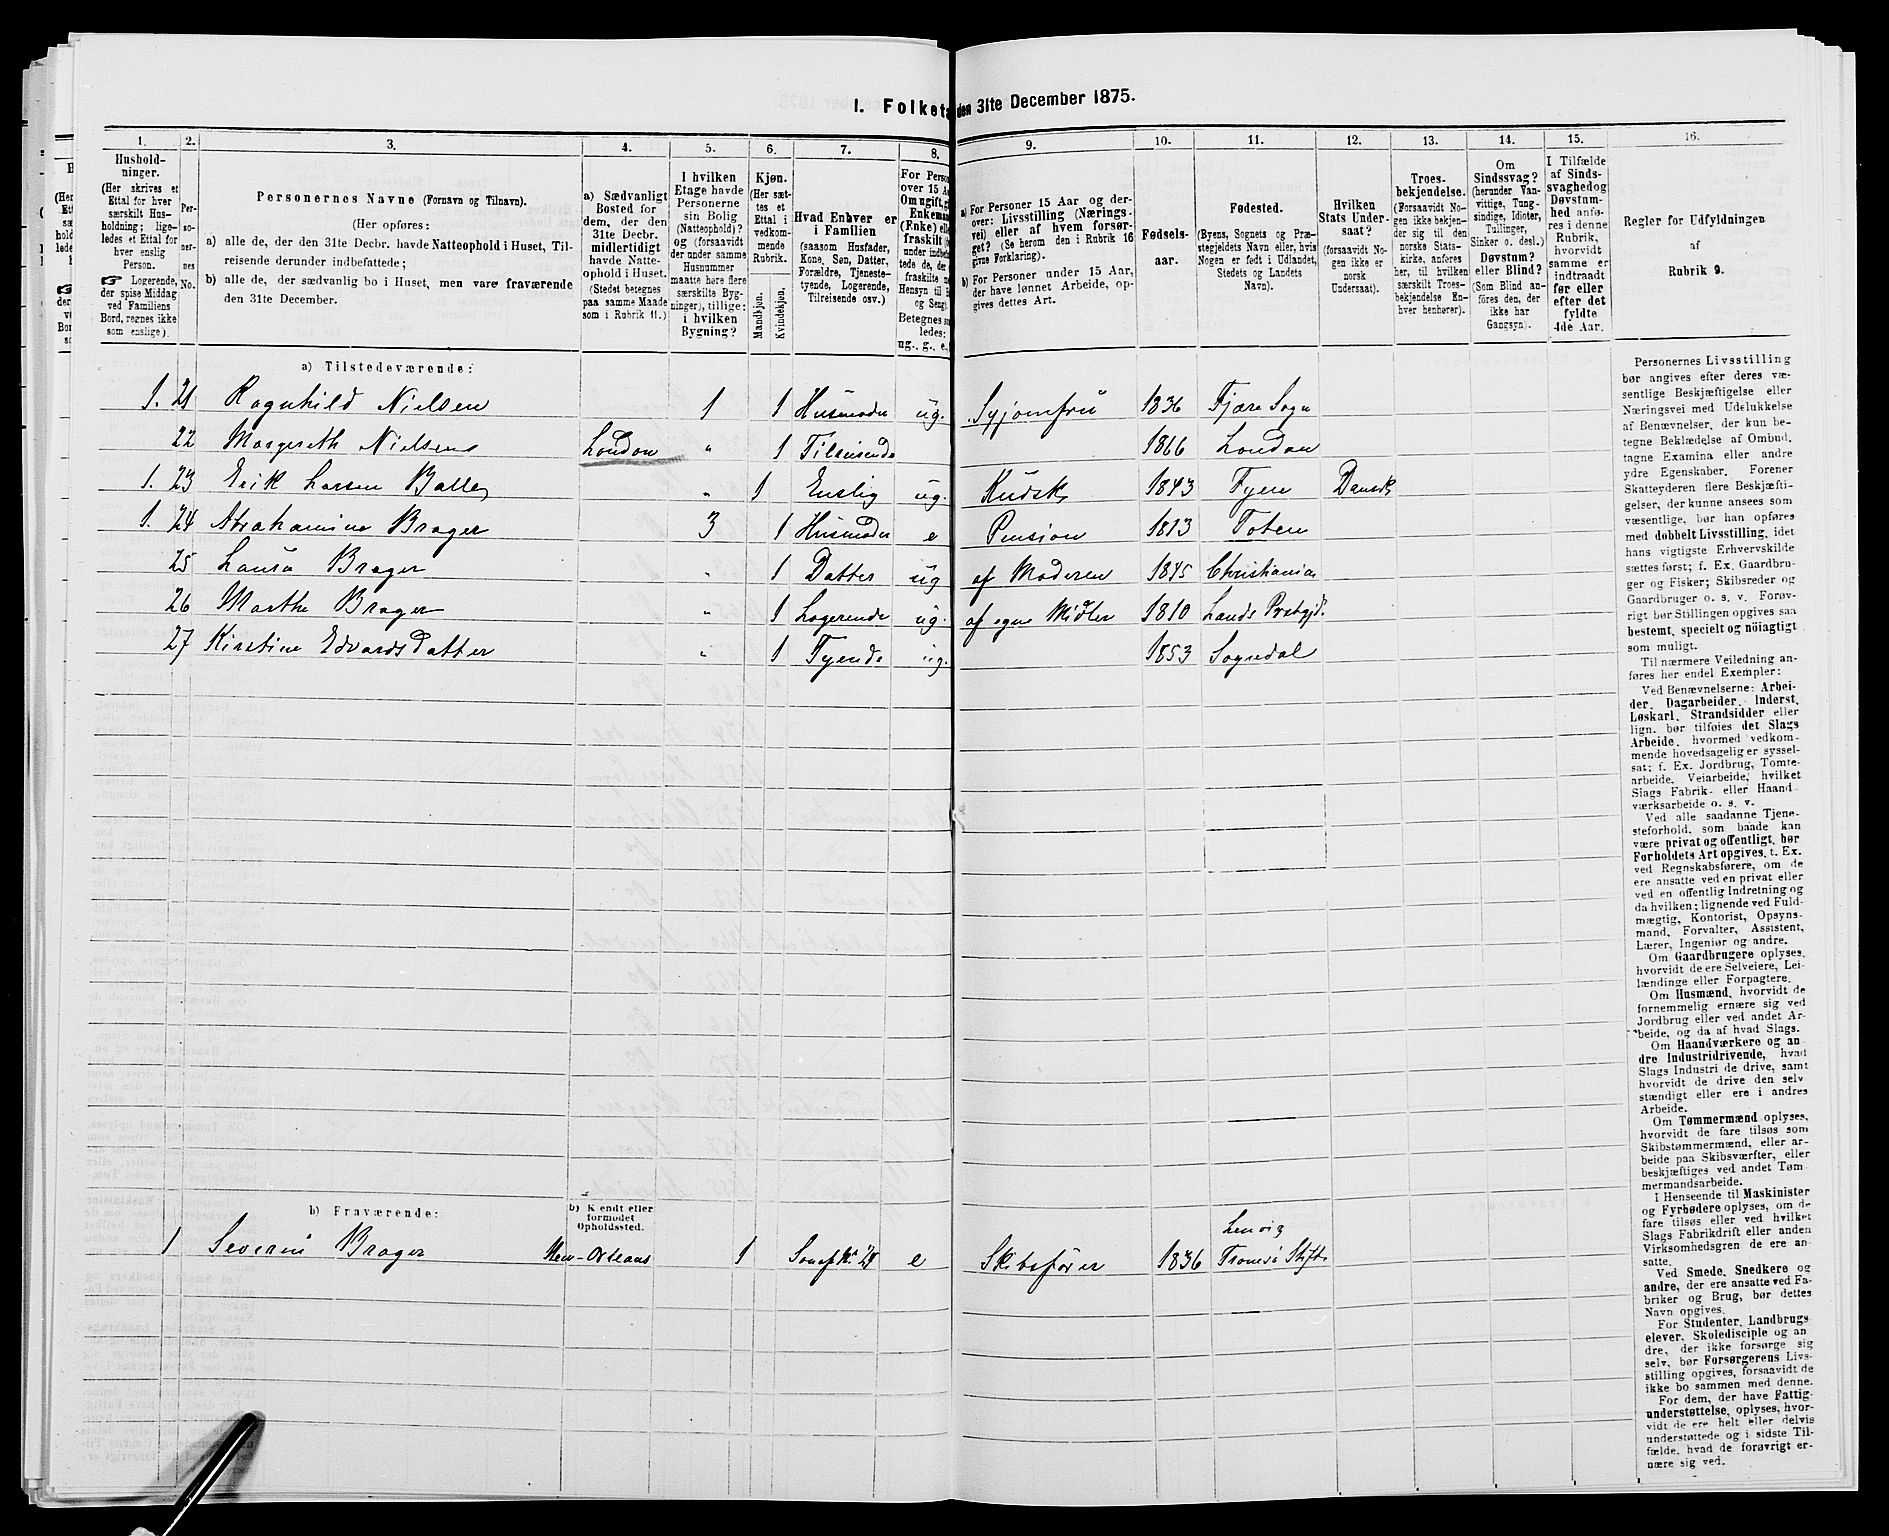 I. Folketæ
den 31te December 1875.
1. 2. 3. 4. 5. 6. 7. 8. 9. 10. 11. 12. 13. 14. 15. 16.
Hushold-
ninger.
(Her skrives et
Ettal for hver
særskilt Hus-
holdning; lige-
ledes et Ettal for
hver enslig
Person.
☞ Logerende,
der spise Middag
ved Familiens
Bord, regnes ikke
som enslige).
Per-
so-
ner-
nes
No.
Personernes Navne (Fornavn og Tilnavn).
(Her opføres:
a) alle de, der den 31te Decbr. havde Natteophold i Huset, Til-
reisende derunder indbefattede;
b) alle de, der sædvanlig bo i Huset, men vare fraværende
den 31te December.
a) Sædvanligt
Bosted for
dem, der den
31te Decbr.
midlertidigt
havde Natte-
ophold i Huset.
(Stedet betegnes
paa samme Maade
som i Rubrik 11.)
I hvilken
Etage havde
Personerne
sin Bolig
(Natteophold)?
og (forsaavidt
der under samme
Husnummer
maatte høre flere
særskilte Byg-
ninger), tillige:
i hvilken
Bygning?
Kjøn.
(Her sæt-
tes et
Ettal i
vedkom-
mende
Rubrik.
Mandkjøn.
Kvindekjøn.
Hvad Enhver er
i Familien
(saasom Husfader,
Kone, Søn, Datter,
Forældre, Tjeneste-
tyende, Logerende,
Tilreisende osv.)
For Person
over 15 Aar
Om ugift, g
Enkema
(Enke) ell
fraskilt
under indbef
tede de, der
fraskilte
Hensyn til B
og Seng)
Betegnes saa
ledes:
ug., g., e.,
a) For Personer 15 Aar og der-
over: Livsstilling (Nærings-
vei) eller af hvem forsør-
get? (Se herom den i Rubrik 16
givne Forklaring).
b) For Personer under 15 Aar,
der have lønnet Arbeide, op-
gives dettes Art.
Fødsels-
aar.
Fødested.
(Byens, Sognets og Præ-
stegjeldets Navn eller, hvis
Nogen er født i Udlandet,
Stedets og Landets
Navn).
Hvilken
Stats Under-
saat?
(forsaavidt No-
gen ikke er
norsk
Undersaat).
Troes-
bekjendelse.
(Forsaavidt No-
gen ikke bekjen-
der sig til den
norske Stats-
kirke, anføres
her, til hvilken
særskilt Troes-
bekjendelse En-
hver henhører).
Om
Sindssvag?
(herunder Van-
vittige, Tung-
sindige, Idioter,
Tullinger,
Sinker o. desl.)
Døvstum?
eller Blind?
(Som Blind an-
føres den, der
ikke har
Gangsyn).
I Tilfælde
af Sinds-
svaghed og
Døvstum-
hed anfø-
res i denne
Rubrik,
hvorvidt
samme er
indtraadt
før eller
efter det
fyldte
4de Aar.
Regler for Udfyldningen
af
Rubrik 9.
a) Tilstedeværende:
1. 21 Ragnhild Nielsen 1 1 Husmoder ug. Syjomfru 1836 Fjære Sogn
22 Margareth Nielsen London " 1 Tilreisende 1866 London
1. 23 Erik Larsen Balle " 1 Enslig ug. Kudsk 1843 Fyen Dansk
1. 24 Abrahamine Brager 3 1 Husmoder e Pension 1813 Toten
25 Laura Brager " 1 Datter ug af Moderen 1845 Christiania
26 Marthe Brager " 1 Logerende ug. af egne Midler 1810 Lands Prstgjd.
27 Kirstine Edvardsdatter " 1 Tyende ug. 1853 Sogndal
b) Fraværende:
b) Kjendt eller
formodet
Opholdssted.
1 Severin Brager New-Orleans 1 Søn af No 24 e Skibsfører 1836 Lenvig
Tromsø Stift
Personernes Livsstilling
bør angives efter deres væ-
sentlige Beskjæftigelse eller
Næringsvei med Udelukkelse
af Benævnelser, der kun be-
tegne Beklædelse af Ombud,
tagne Examina eller andre
ydre Egenskaber. Forener
Skatteyderen flere Beskjæfti-
gelser, der kunne ansees som
væsentlige, bør han opføres
med dobbelt Livsstilling, idet
hans vigtigste Erhvervskilde
sættes først; f. Ex. Gaardbru-
ger og Fisker; Skibsreder og
Gaardbruger o. s. v. Forøv-
rigt bør Stillingen opgives saa
bestemt, specielt og nöiagtigt
som muligt.
Til nærmere Veiledning an-
føres her endel Exempler:
Ved Benævnelserne: Arbei-
der, Dagarbeider, Inderst,
Løskarl, Strandsidder eller
lign. bør tilføies det Slags
Arbeide, hvormed vedkom-
mende hovedsagelig er syssel-
sat; f. Ex. Jordbrug, Tomte-
arbeide, Veiarbeide, hvilket
Slags Fabrik- eller Haand-
værksarbeide o. s. v.
Ved alle saadanne Tjene-
steforhold, som baade kan
være privat og offentligt, bør
Forholdets Art opgives, t. Ex.
ved Regnskabsførere, om de
ere ansatte ved en privat eller
ved en offentlig Indretning og
da hvilken; lignende ved Fuld-
mægtig, Kontorist, Opsyns-
mand, Forvalter, Assistent,
Lærer, Ingeniør og andre.
Om Gaardbrugere oplyses,
hvorvidt de ere Selveiere, Lei-
lændinge eller Forpagtere.
Om Husmænd, hvorvidt de
fornemmelig ernære sig ved
Jordbrug eller ved andet Ar-
beide, og da af hvad Slags.
Om Haandværkere og an
dre Industridrivende, hvad
Slags Industri de drive, samt
hvorvidt de drive den selv
stændigt eller ere i andres
Arbeide.
Om Tømmermænd oplyses,
hvorvidt de fare tilsøs som
Skibstømmermænd, eller ar-
beide paa Skibsværfter, eller
beskjæftiges ved andet Tøm
mermandsarbeide.
I Henseende til Maskinister
og Fyrbødere oplyses, om de
fare tilsøs eller ved hvilket
Slags Fabrikdrift eller anden
Virksomhedsgren de ere an-
satte.
Ved Smede, Snedkere og
andre, der ere ansatte ved Fa-
briker og Brug, bør dettes
Navn opgives.
For Studenter, Landbrugs
elever, Skoledisciple og an
dre, der ikke forsørge sig
selv, bør Forsørgerens Livs-
stilling opgives, forsaavidt de
ikke bo sammen med denne.
For dem, der have Fattig-
understøttelse, oplyses, hvor-
vidt de ere helt eller delvis
understøttede og i sidste Til-
fælde, hvad de forøvrigt er-
nære sig ved.